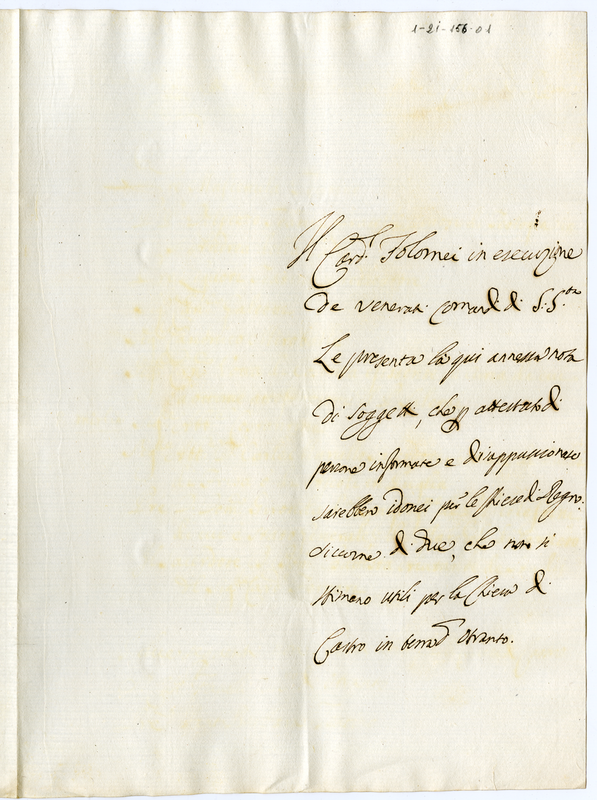 1-21-156-01
Il Card.l Tolomei in esecuzione
de venerat. comandi di S. S.tà
Le presenta la qui annessa nota
di soggetti, che p attestato di
persone informate e disappassionate
sarebbero idonei per le Chiese di Regno.
siccome di due, che non si
stimano utili per la Chiesa di
Castro in terra d'Otranto.